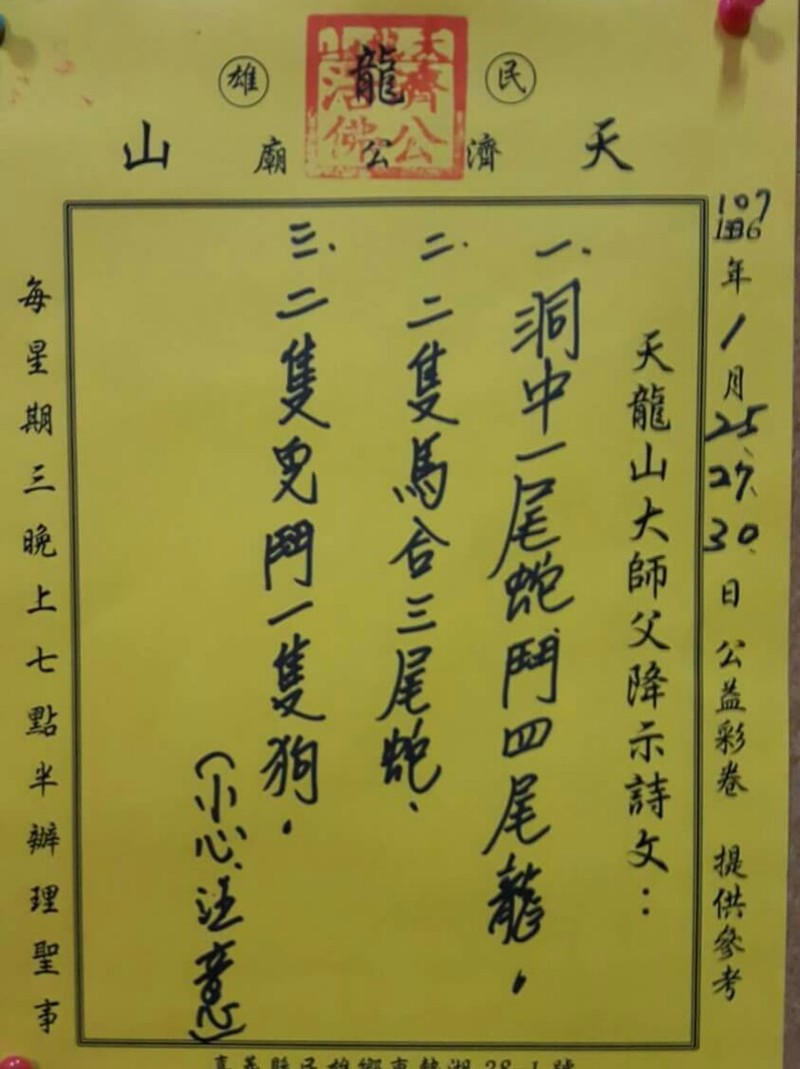 民 龍 雄
天 濟 公 廟 山
天龍
濟公
活佛
107
106年1月25、27、30、日 公益彩卷 提供參考
天龍山大師父降示詩文：
一、洞中一尾蛇鬥四尾龍，
二、二隻馬合三尾蛇、
三、二隻兒鬥一隻狗，
（小心注意）
每星期三晚上七點半辦理聖事